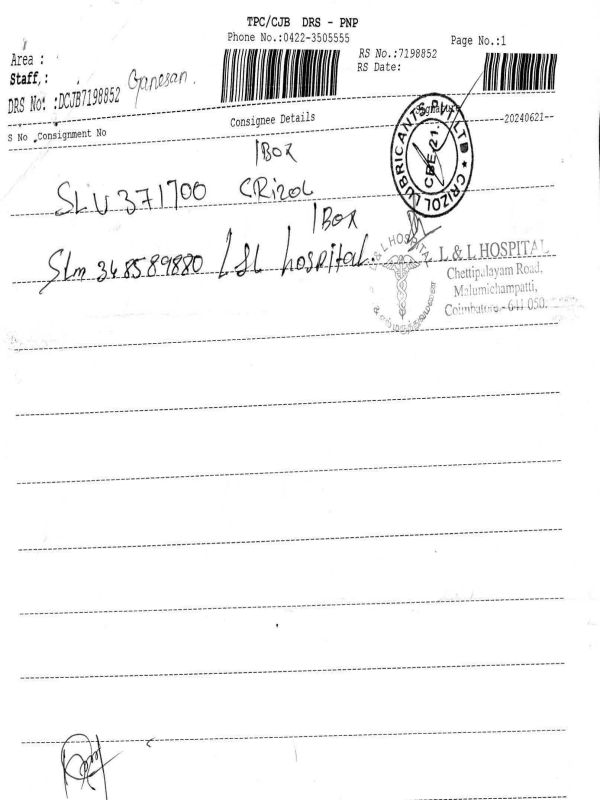 TPC/CJB DRS - PNP
Phone No.:0422-3505555
Page No.:1
Area :
RS No.:7198852
Staff,:
Ganesan.
RS Date:
DRS No. :DCJB7198852
S No Consignment No
Consignee Details
Signature
--20240621--
1 BOX
SLU371700 CRizol
CRIZOL LUBRICANTS PVT LTD ★
CBE-21.
1 BOX
Slm 348589880 L&L hospital.
L & L HOSPITAL
L & L HOSPITAL
Chettipalayam Road,
Malumichampatti,
Coimbatore - 641 050.